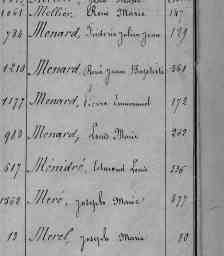 1061 Mellier, René Marie 147
724 Menard, Julien Jean 129
1210 Menard, René Jean Baptiste 361
1177 Menard, Pierre Emmanuel 172
903 Menard, Louis Marie 262
617 Ménidré, Edmond Louis 226
1562 Meré, Joseph Marie 477
13 Merel, Joseph Marie 80